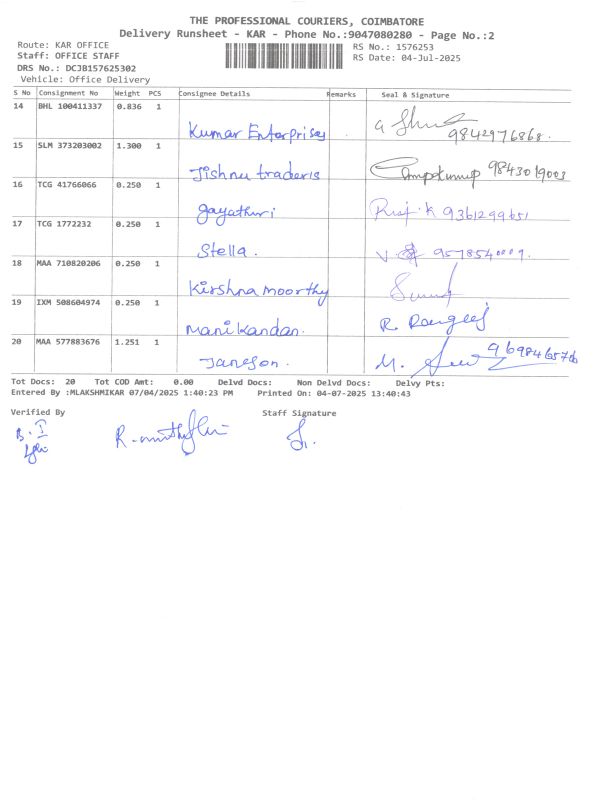 THE PROFESSIONAL COURIERS, COIMBATORE
Delivery Runsheet - KAR - Phone No.:9047080280 - Page No.:2
Route: KAR OFFICE
Staff: OFFICE STAFF
DRS No.: DCJB157625302
Vehicle: Office Delivery
RS No.: 1576253
RS Date: 04-Jul-2025
S No Consignment No Weight PCS Consignee Details Remarks Seal & Signature
14 BHL 100411337 0.836 1 Kumar Enterprises 9842976868.
15 SLM 373203002 1.300 1 Jishnu traderis 9843019003
16 TCG 41766066 0.250 1 gayathiri K 9361299651
17 TCG 1772232 0.250 1 Stella. V.
18 MAA 710820206 0.250 1 Kirshna moorthy
19 IXM 508604974 0.250 1 Manikandan. R.
20 MAA 577883676 1.251 1 Janeson. M.
Tot Docs: 20 Tot COD Amt: 0.00 Delvd Docs: Non Delvd Docs: Delvy Pts:
Entered By :MLAKSHMIKAR 07/04/2025 1:40:23 PM Printed On: 04-07-2025 13:40:43
Verified By Staff Signature